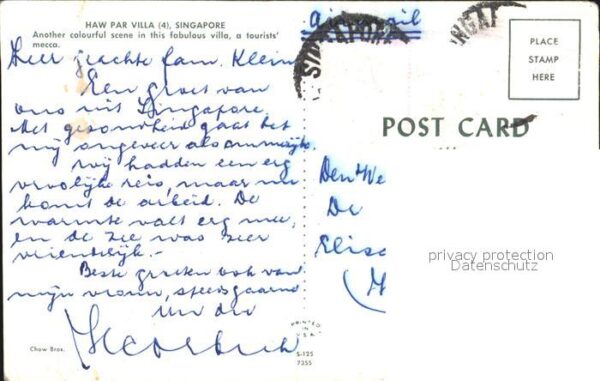 HAW PAR VILLA (4), SINGAPORE
Another colourful scene in this fabulous villa, a tourists'
mecca.
Zeer geachte fam. Klein
Een groet van
ons uit Singapore.
Met gezondheid gaat het
mij ongeveer als
Wij hadden een erg
vroolijke reis, maar nu
komt de arbeid. De
warmte valt erg mee,
en de zee was zeer
vriendelijk.-
Beste groeten ook van
mijn vrouw,
Uw dw
Chow Bros.
air mail
SINGAPORE
PLACE
STAMP
HERE
POST CARD
Den We
De
Elisa
(
privacy protection
Datenschutz
PRINTED IN U.S.A.
S-125
7355